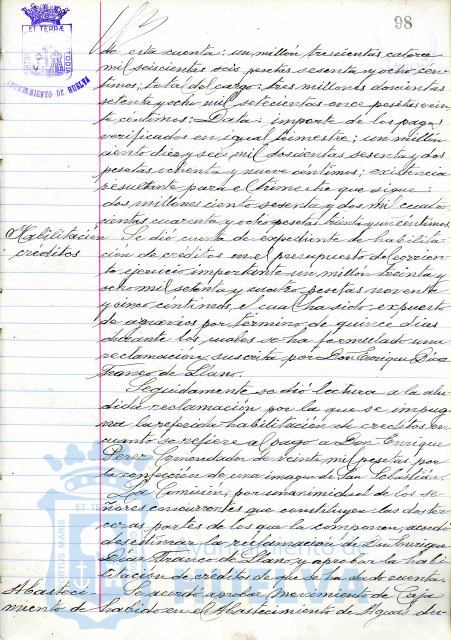 98
ET TERRÆ
TODIA
AYUNTAMIENTO DE HUELVA
de esta cuenta: un millón trescientas catorce
mil seiscientas seis pesetas sesenta y ocho cén-
timos; total del cargo: tres millones doscientas
setenta y ocho mil setecientas once pesetas vein-
te céntimos: Data: importe de los pagos
verificados en igual trimestre: un millón
ciento diez y seis mil doscientas sesenta y dos
pesetas ochenta y nueve céntimos; existencia
resultante para el trimestre que sigue:
dos millones ciento sesenta y dos mil cuatro-
cientas cuarenta y ocho pesetas treinta y un céntimos.
Habilitación Se dió cuenta de expediente de habilita-
créditos ción de créditos en el presupuesto del corrien-
te ejercicio importante un millón treinta y
ocho mil setenta y cuatro pesetas noventa
y cinco céntimos, el cual ha sido expuesto
de agravios por término de quince días
durante los cuales se ha formulado una
reclamación suscrita por Don Enrique Díaz
Franco de Llano.
Seguidamente se dió lectura a la alu-
dida reclamación por la que se impug-
na la referida habilitación de créditos en
cuanto se refiere al pago a Don Enrique
Pérez Comendador de veinte mil pesetas por
la confección de una imagen de San Sebastián.
La Comisión, por unanimidad de los se-
ñores concurrentes que constituyen las dos ter-
ceras partes de los que la componen, acordó
desestimar la reclamación de Don Enrique
Díaz Franco de Llano y aprobar la habi-
litación de créditos de que se ha dado cuenta.
Abasteci- Se acordó aprobar Movimiento de Caja
miento de habido en el Abastecimiento de Aguas du-
ET TERRÆ
PORTUS MARIS
Ayuntamiento de
HUELVA